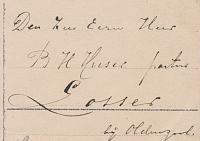 Den Zeer Eerw Heer
B H Heuser pastoor
Losser
bij Oldenzaal.